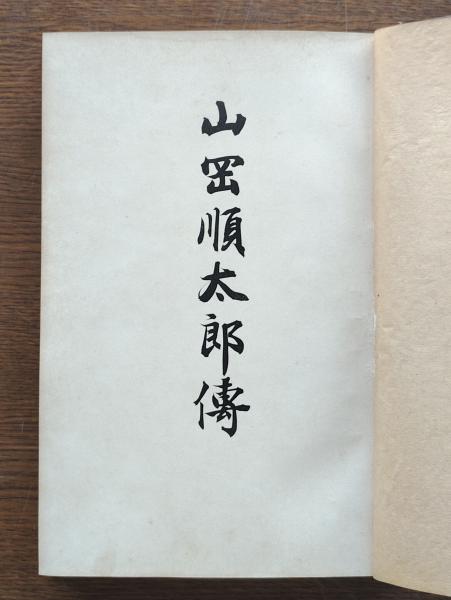 山岡順太郎傳